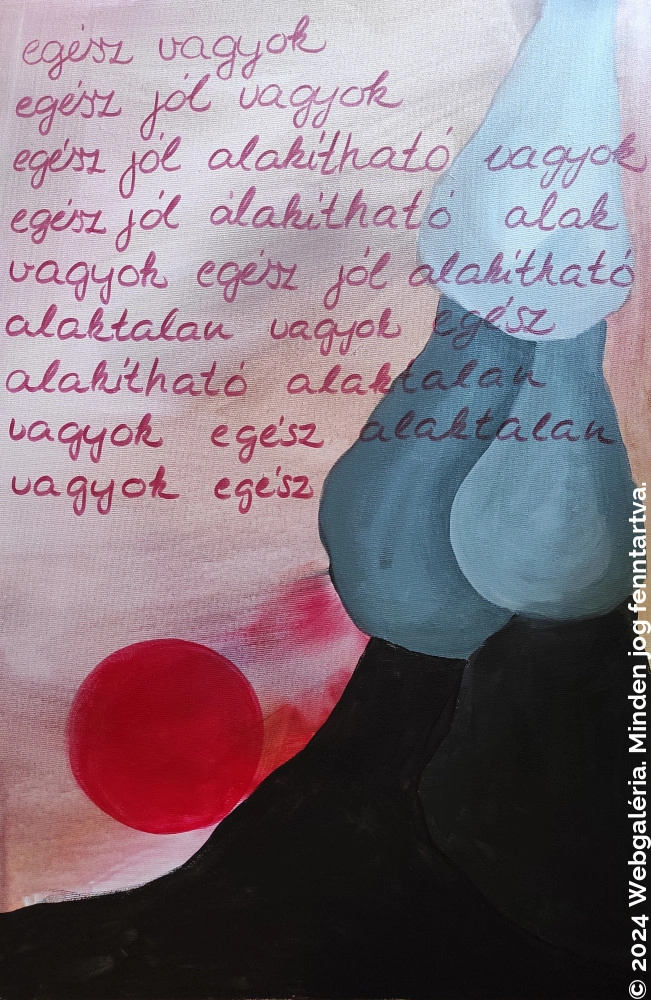 egész vagyok
egész jól vagyok
egész jól alakítható vagyok
egész jól alakítható alak
vagyok egész jól alakítható
alaktalan vagyok egész
alakítható alaktalan
vagyok egész alaktalan
vagyok egész
© 2024 Webgaléria. Minden jog fenntartva.